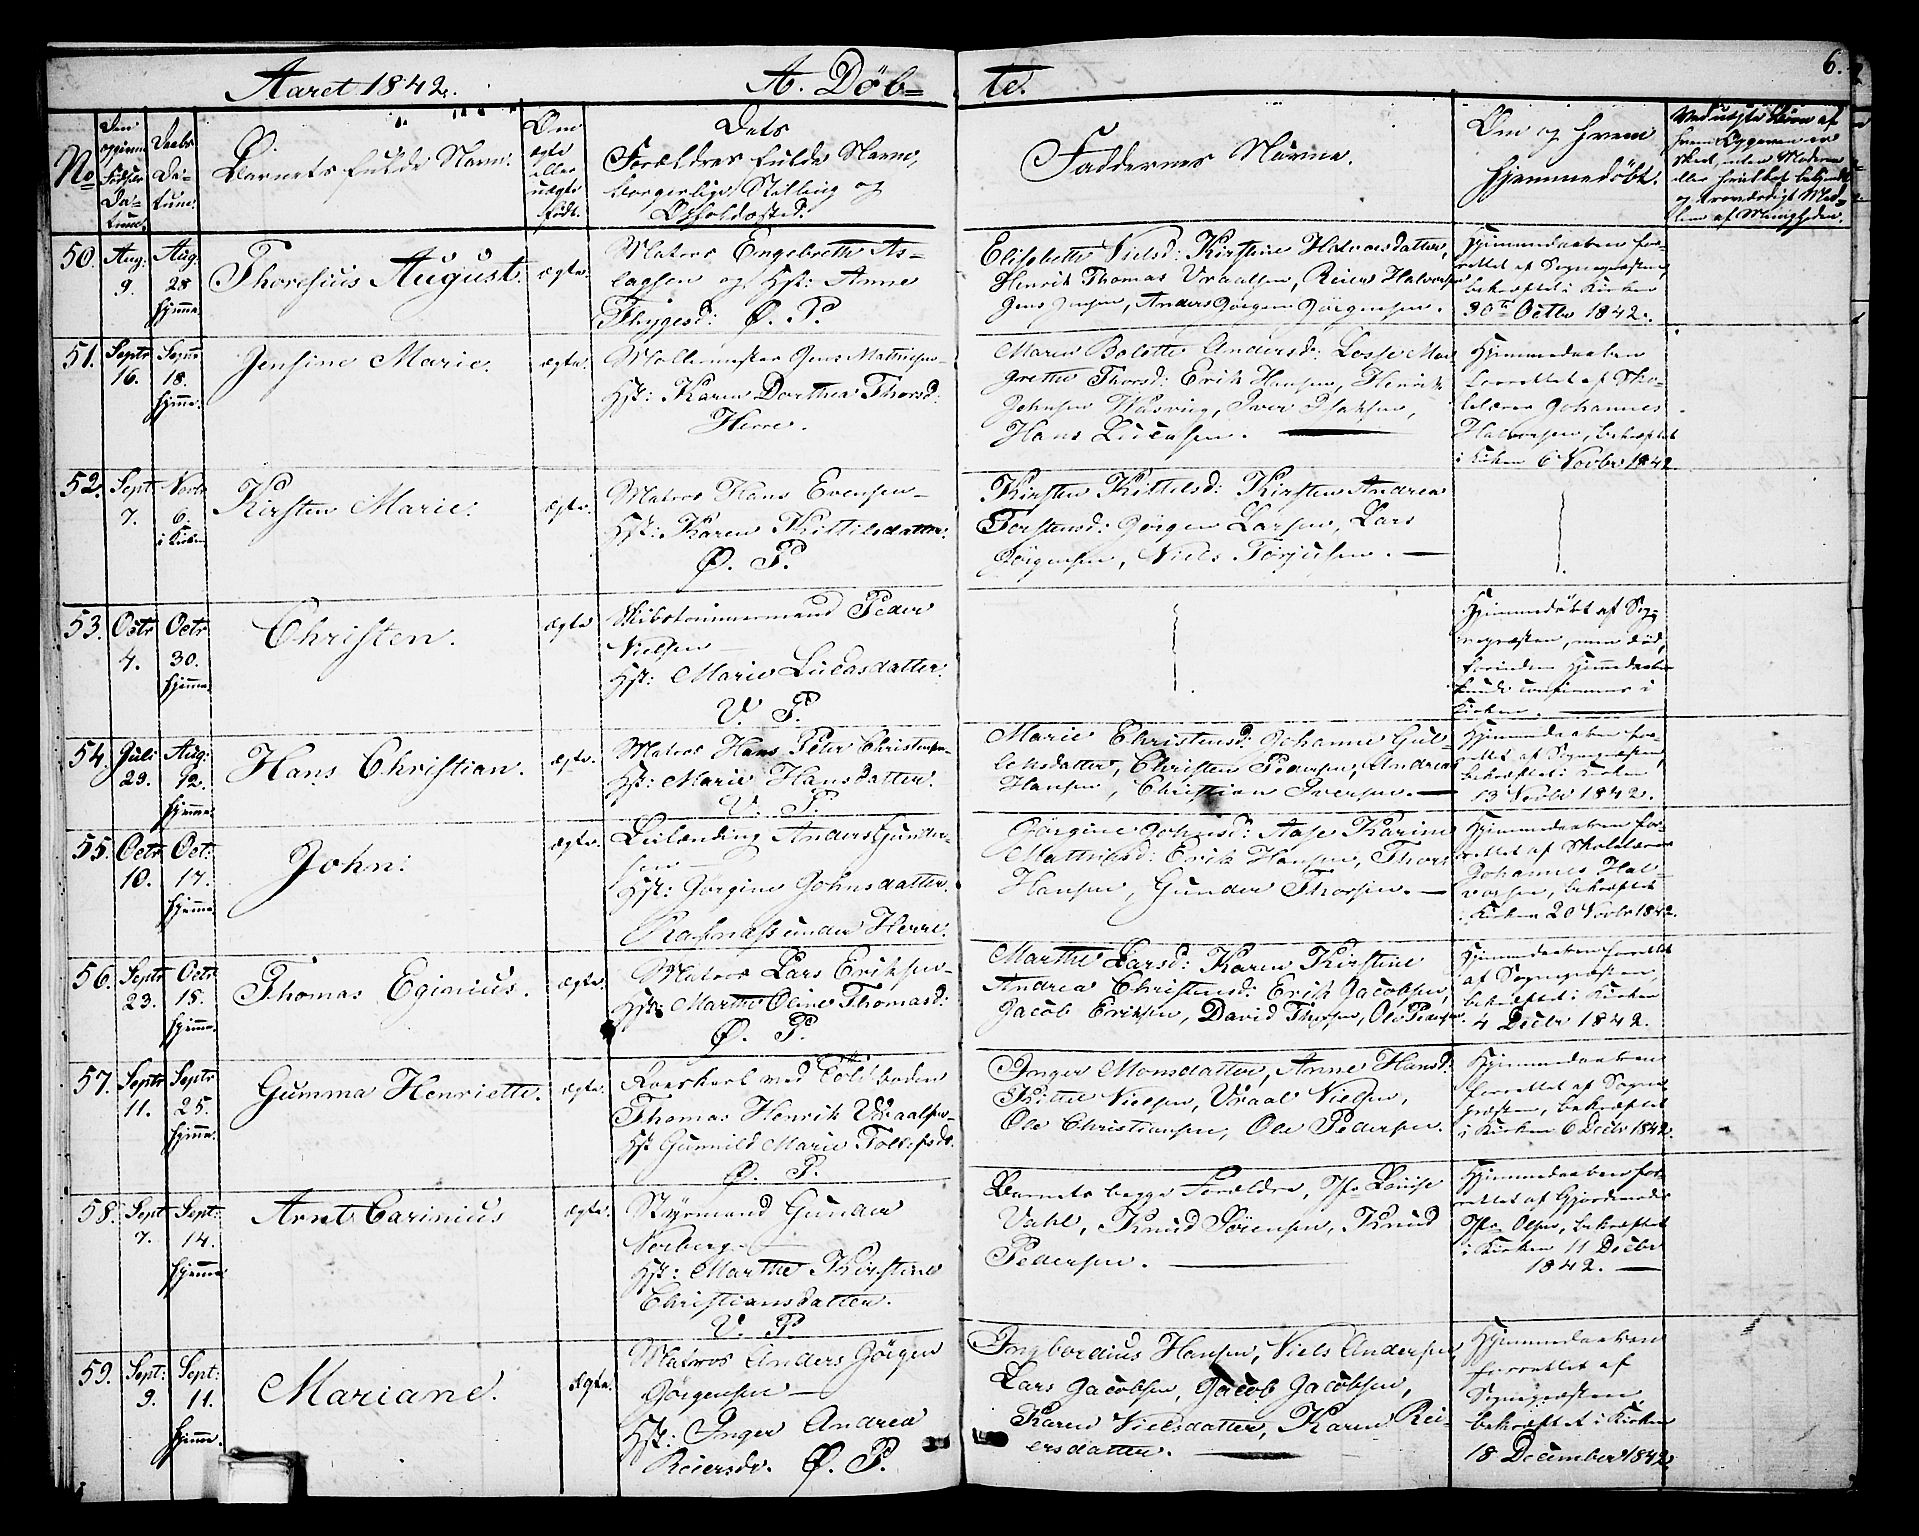 6.
Aaret 1842. A. Döb= te.
No
Den opgivne Fødsels Datum.
Daabs Datum.
Barnets fulde Navn.
Om ægte eller uægte født.
Dets Forældres fulde Navne, borgerlige Stilling og Opholdssted.
Faddernes Navne.
Om og hvem hjemmedöbt.
50. Aug. 9. Aug. 28 hjemme.
Thoresius August. ægte.
Matros Engebreth As-
lagsen og Hst: Anne
Thygesd: Ø. P.
Elisabeth Nielsd: Kirstine Halvorsdatter,
Henrik Thomas Vraalsen, Reier Halvorsen
Jens Jensen, Anders Jørgen Jørgensen.
Hjemmedaaben for-
rettet af Sognepræsten,
bekræftet i Kirken
30te Octbr 1842.
51. Septr 16. Septr 18. hjemme.
Jensine Marie. ægte.
Møllemester Jens Mathiesen
Hst: Karen Dorthea Thorsd:
Herre.
Maren Bolette Andersd: Losse Mar
grethe Thorsd: Erik Hansen, Henrik
Johnsen Iver
Hans Lucasen.
Hjemmedaaben
forrettet af Sko-
lelærer Johannes
Halvorsen, bekræftet
i Kirken 6 Novbr 1842
52. Sept 7. Novbr 6. i Kirken
Kirsten Marie. ægte.
Matros Hans Evensen
Hst: Karen Kittilsdatter.
Ø. P.
Kirsten Kittelsd: Kirsten Andrea
Torstensd: Jørgen Larsen, Lars
Jørgensen, Niels Torjusen.
53. Octr 4. Octr 30. hjemme.
Christen. ægte
Skibstømmermand Peder
Nielsen
Hst: Marie Lucasdatter.
V. P.
Hjemmedøbt af Sog-
nepræsten, men død,
forinden Hjemmedaaben
kunde confirmeres i
Kirken.
54. Juli 23. Aug: 12. hjemme.
Hans Christian. ægte.
Matros Hans Peter Christensen
Hst: Marie Hansdatter.
V. P.
Marie Christensd: Johanne Gul-
leksdatter, Christen Pedersen, Andreas
Hansen, Christian Iversen.
Hjemmedaaben for-
rettet af Sognepræsten,
bekræftet i Kirken
13 Novbr 1842.
55. Octr 10. Oct: 17. hjemme.
John. ægte.
Leilænding Anders Gunder-
sen
Hst: Jørgine Johnsdatter.
Rafnæs under Herre.
Jørgine Johnsd: Aase Karine
Mathiasd: Erik Hansen, Thors
Hansen, Gunder Thorsen.
Hjemmedaaben for-
rettet af Skolelærer
Johannes Hal-
vorsen, bekræftet
i Kirken 20 Novbr 1842.
56. Septr 23. Octr 15. hjemme.
Thomas Eginius. ægte.
Matros Lars Eriksen
Hst: Marthe Oline Thomasd:
Ø. P.
Marthe Larsd: Karen Kirstine
Andrea Christensd: Erik Jacobsen,
Jacob Eriksen, David Thorsen, Ole Pedersen.
Hjemmedaaben forrettet
af Sognepræsten,
bekræftet i Kirken
4 Decbr 1842.
57. Septr 11. Septr 25. hjemme.
Gumma Henriette. ægte.
Roerskarl ved Toldboden
Thomas Henrik Vraalsen
Hst Gunnild Marie Tollefsd.
Ø. P.
Inger Monsdatter, Anne Hansd:
Kittel Nielsen, Vraal Nielsen,
Ole Christiansen, Ole Pedersen.
Hjemmedaaben
forrettet af Sogne
præsten, bekræftet
i Kirken 6 Decbr 1842.
58. Sept 7. Sept: 14. hjemme.
Arnt Carinius ægte.
Styrmand Gunder
Norberg
Hst: Marthe Kirstine
Christiansdatter.
V. P.
Barnets begge Forældre, Jfr Louise
Vahl, Knud Sørensen, Knud
Pedersen.
Hjemmedaaben for-
rettet af Gjordemoder
Jfr Olsen, bekræftet
i Kirken 11 Decbr
1842.
59. Sept: 9. Sept: 11. hjemme.
Mariane. ægte.
Matros Anders Jörgen
Jörgensen
Hst: Inger Andrea
Reiersdr. Ø. P.
Ingbordius Hansen, Niels Andersen,
Lars Jacobsen, Jacob Jacobsen,
Karen Nielsdatter, Karen Rei-
ersdatter.
Hjemmedaaben
forrettet af
Sognepræsten
bekræftet i Kirken
18 December 1842.